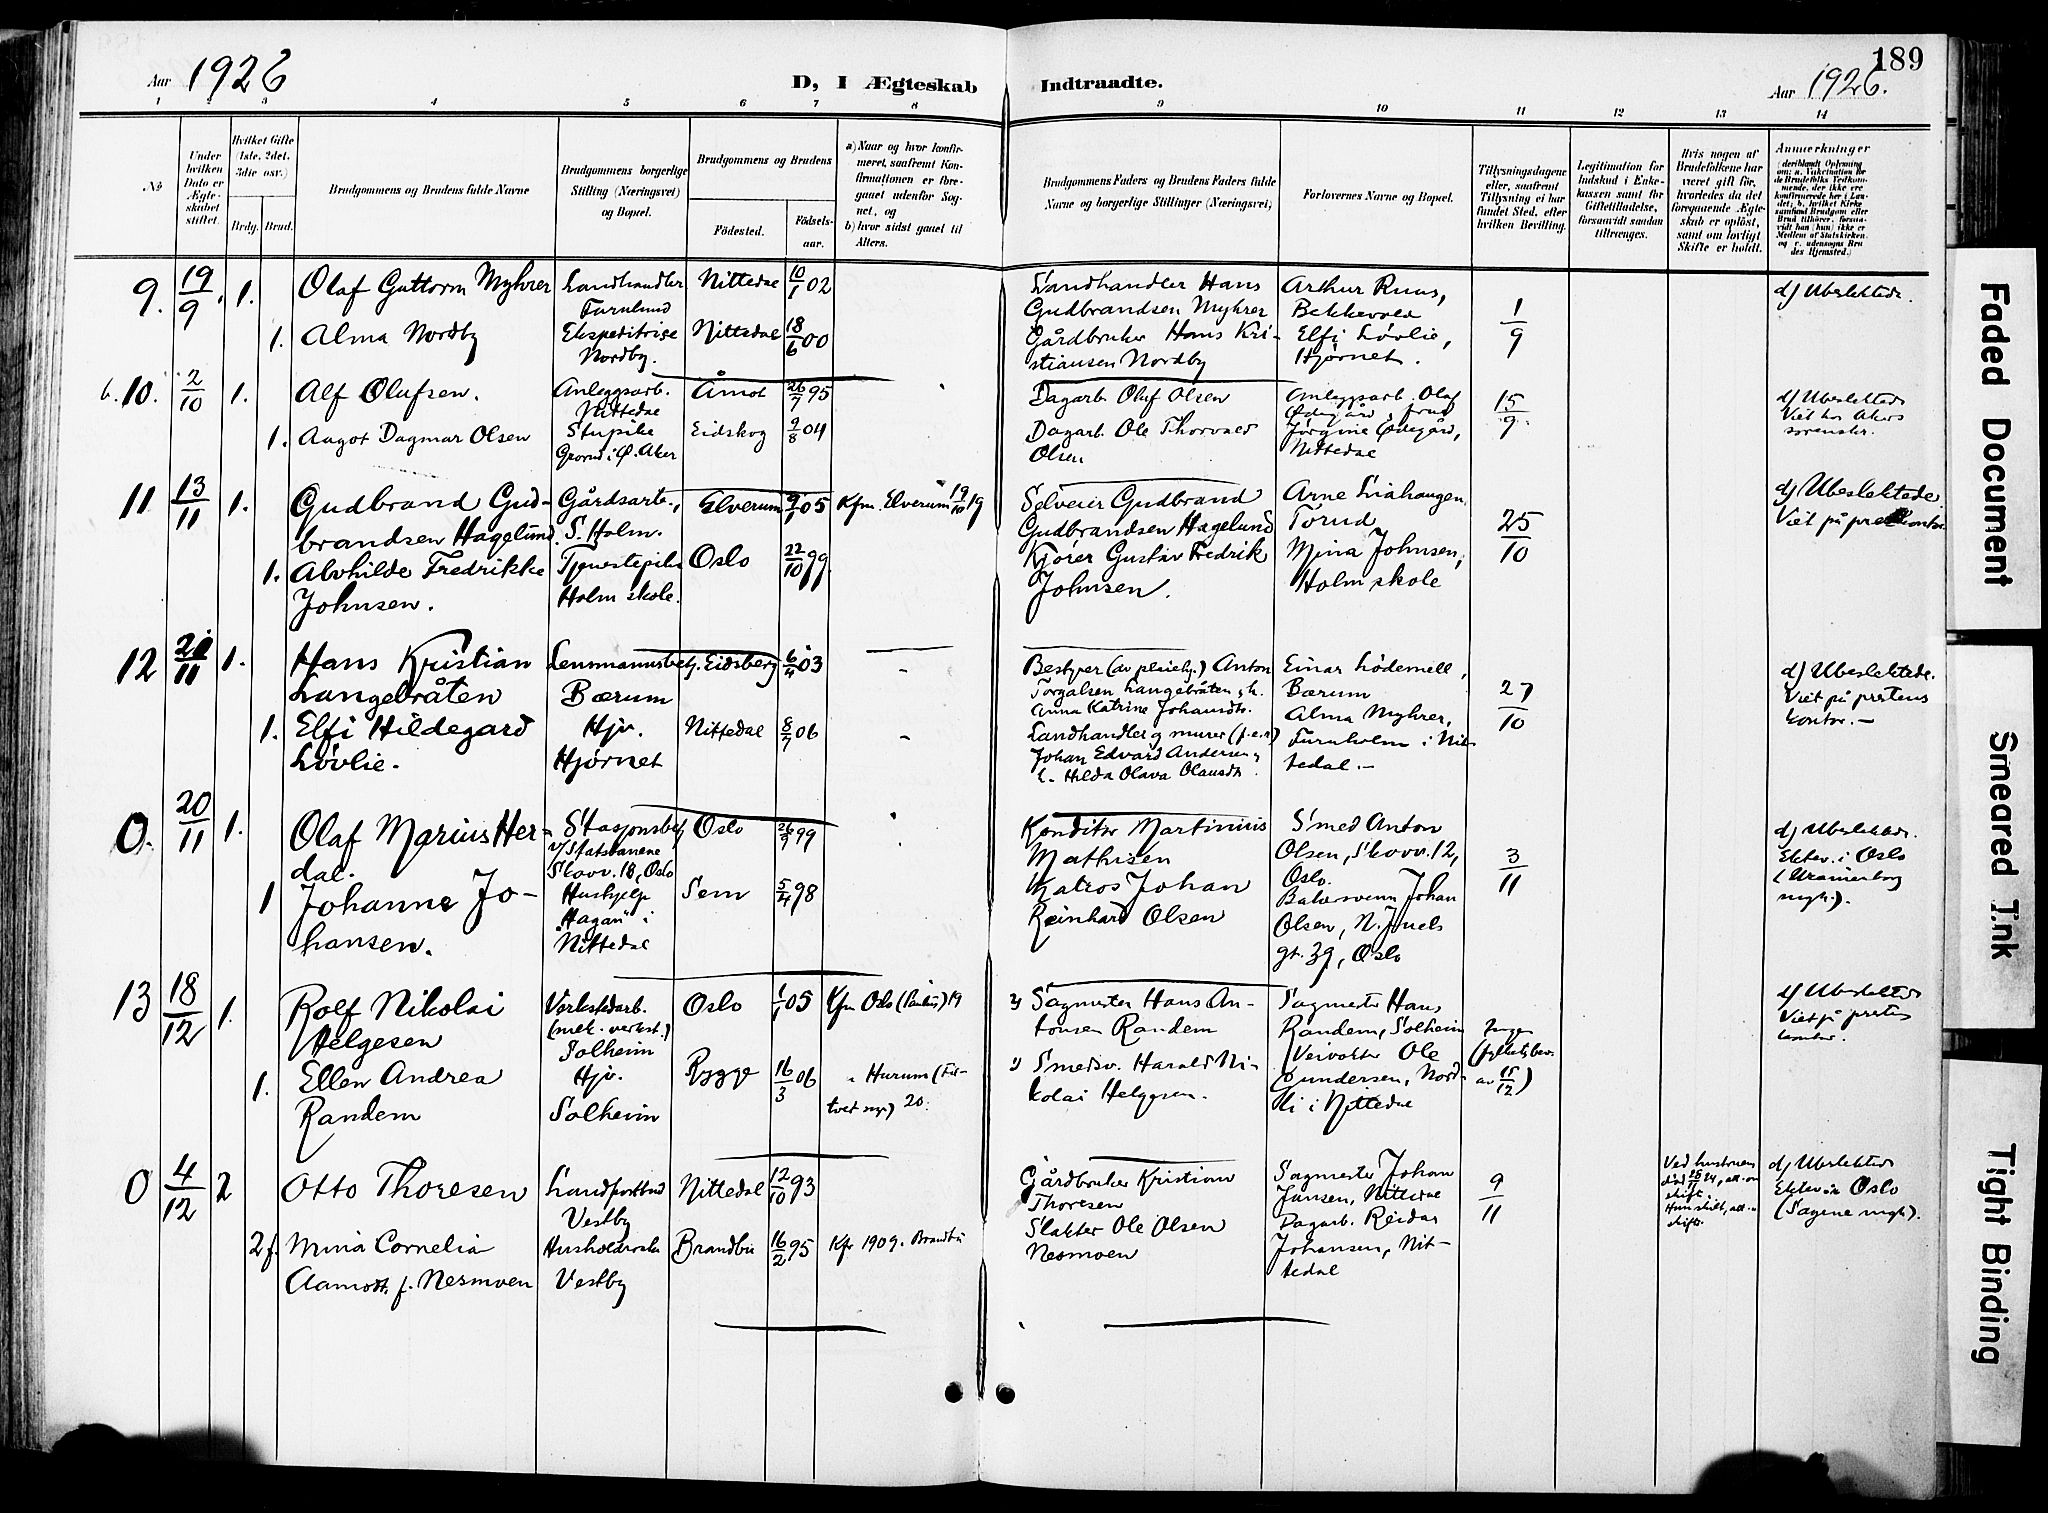 189
Aar 1926
D, I Ægteskab Indtraadte.
Aar 1926.
1 2 3 4 5 6 7 8 9 10 11 12 13 14
No
Under hvilken Dato er Ægteskabet stiftet.
Hvilket Gifte (1ste, 2det, 3die osv.)
Brdg. Brud.
Brudgommens og Brudens fulde Navne
Brudgommens borgerlige Stilling (Næringsvei) og Bopæl.
Brudgommens og Brudens
Födested. Födselsaar.
a) Naar og hvor konfirmeret, saafremt Konfirmationen er foregaaet udenfor Sognet, og
b) hvor sidst gaaet til Alters.
Brudgommens Faders og Brudens Faders fulde Navne og borgerlige Stillinger (Næringsvei)
Forlovernes Navne og Bopæl.
Tillysningsdagene eller, saafremt Tillysning ei har fundet Sted, efter hvilken Bevilling.
Legitimation for Indskud i Enkekassen samt for Giftetilladelse, forsaavidt saadan tiltrænges.
Hvis nogen af Brudefolkene har været gift før, hvorledes da det foregaaende Ægteskab er opløst, samt om lovligt Skifte er holdt.
Anmerkninger
9. 19/9. 1.
Olaf Guttorm Myhrer
Landhandler
Furulund
Nittedal 10/1 02
Landhandler Hans
Gudbrandsen Myhrer
Arthur Ruus,
Bekkevold
1/9
d) Ubeslektede.
1. Alma Nordby
Ekspeditrise
Nordby.
Nittedal 18/6 00
Gårdbruker Hans Kri-
stiansen Nordby
Elfi Løvlie,
Hjørnet.
b. 10. 2/10 1.
Alf Olufsen.
Anleggsarb.
Nittedal
Åmot 26/7 95
Dagarb. Oluf Olsen
Anleggsarb. Olaf
Ødegård, frue
15/9
d) Ubeslektede
Viet hos Akers
sorenskr.
1. Aagot Dagmar Olsen
Stupike
Grorud i Ø. Aker
Eidskog 9/8 04
Dagarb. Ole Thorvald
Olsen
Jørgine Ødegård,
Nittedal
11 13/11 1.
Gudbrand Gud-
brandsen Hagelund.
Gårdsarb.,
S. Holm.
Elverum 9/1 05
Kfm. Elverum 19/10 19
Selveier Gudbrand
Gudbrandsen Hagelund
Arne Liahaugen
Torud
25/10
d) Ubeslektede
Viet på prestkontor
1. Alvhilde Fredrikke
Johnsen.
Tjenestepike
Holm skole.
Oslo 22/10 99.
Kjører Gustav Fredrik
Johnsen.
Mina Johnsen,
Holm skole
12 20/11 1.
Hans Kristian
Langebråten
Lensmannsbetj.
Bærum
Eidsberg 6/4 03
Bestyrer (av pleiehj.) Anton
Torgalsen Langebråten, h.
Anna Katrine Johansdtr.
Einar Lødemell,
Bærum
27/10
d) Ubeslektede.
Viet på prestens
kontor. —
1. Elfi Hildegard
Løvlie.
Hjv.
Hjørnet
Nittedal 8/7 06
Landhandler og murer (f.e.r)
Johan Edvard Andersen,
h. Hilda Olava Olausdt.
Alma Myhrer,
Furuholm i Nit-
tedal. —
0. 20/11 1.
Olaf Marius Her-
dal.
Stasjonsbetj.
v/Statsbanene
Skovv. 18, Oslo
Oslo 26/9 99
Konditor Martinius
Mathisen
Smed Anton
Olsen, Skovv. 12,
Oslo.
3/11
d) Ubeslektede.
Ektev. i Oslo
(Uranienborg
mgh.).
1 Johanne Jo-
hansen.
Hushjelp
"Hagan" i
Nittedal
Sem 5/4 98
Matros Johan
Reinhard Olsen
Bakersvenn Johan
Olsen, N. Juels
gt. 39, Oslo
13 18/12 1.
Rolf Nikolai
Helgesen
Verkstedarb.
(mek. verkst.)
Solheim
Oslo 1/1 05
Kfm Oslo (Paulus) 19
2) Sagmester Hans An-
tonsen Randem
Sagmester Hans
Randem, Solheim
Ingen
(fylkesbev.
av 15/12)
d) Ubeslektede
Viet på prestens
kontor.
1. Ellen Andrea
Randem
Hjv.
Solheim
Rygge 16/3 06
" Hurum (Fil-
tvet mgh.) 20.
1) Smedsv. Harald Ni-
kolai Helgesen.
Veivokter Ole
Gundersen, Nord-
li i Nittedal
0 4/12 2
Otto Thoresen
Landpostbud
Vestby
Nittedal 12/10 93
Gårdbruker Kristian
Thoresen
Sagmester Johan
Jansen, Nittedal
9/11
Ved hustruens
død
skift.
Hun skilt,
skifte.
d) Ubeslektede
Ektev. i Oslo
(Sagene mgh).
2 f. Mina Cornelia
Aamott, f. Nesmoen
Husholderske
Vestby
Brandbu 16/2 95
Kfr 1909. Brandbu
Slakter Ole Olsen
Nesmoen
Dagarb. Reidar
Johansen, Nit-
tedal
Faded Document
Smeared Ink
Tight Binding